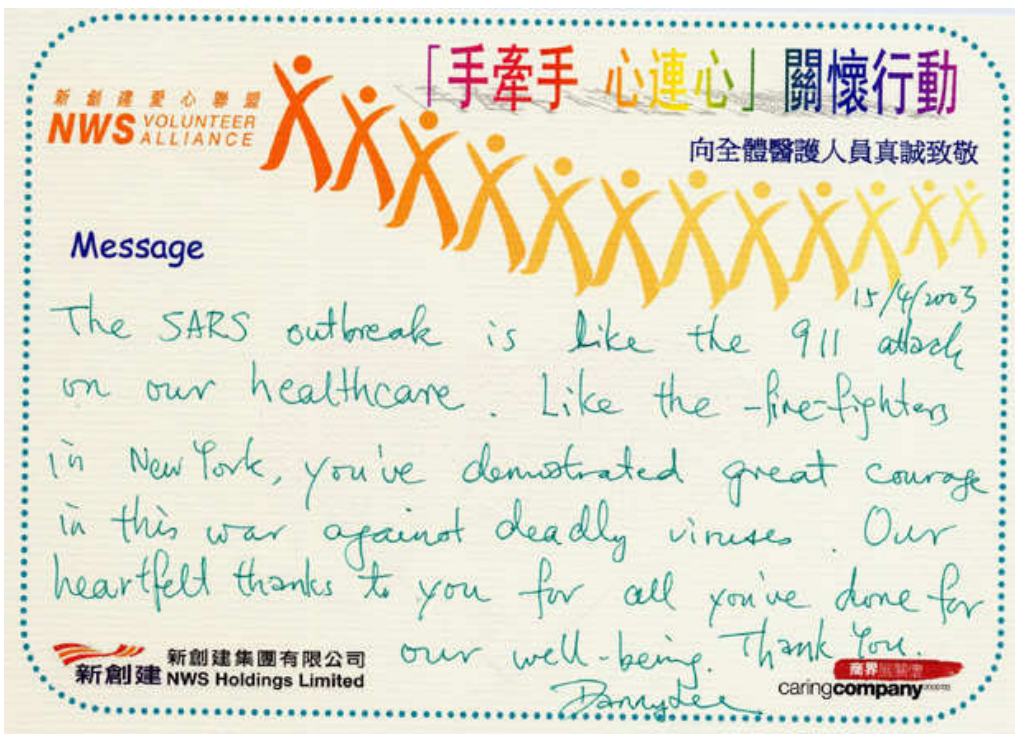 「手牽手 心連心」關懷行動
新創建愛心聯盟
NWS VOLUNTEER
ALLIANCE
向全體醫護人員真誠致敬
Message
15/4/2003
The SARS outbreak is like the 911 attack
on our healthcare. Like the fire-fighters
in New York, you've demostrated great courage
in this war against deadly viruses. Our
heartfelt thanks to you for all you've done for
our well-being. Thank You.
Danny Lee
新創建 新創建集團有限公司
NWS Holdings Limited
商界展關懷
caringcompany